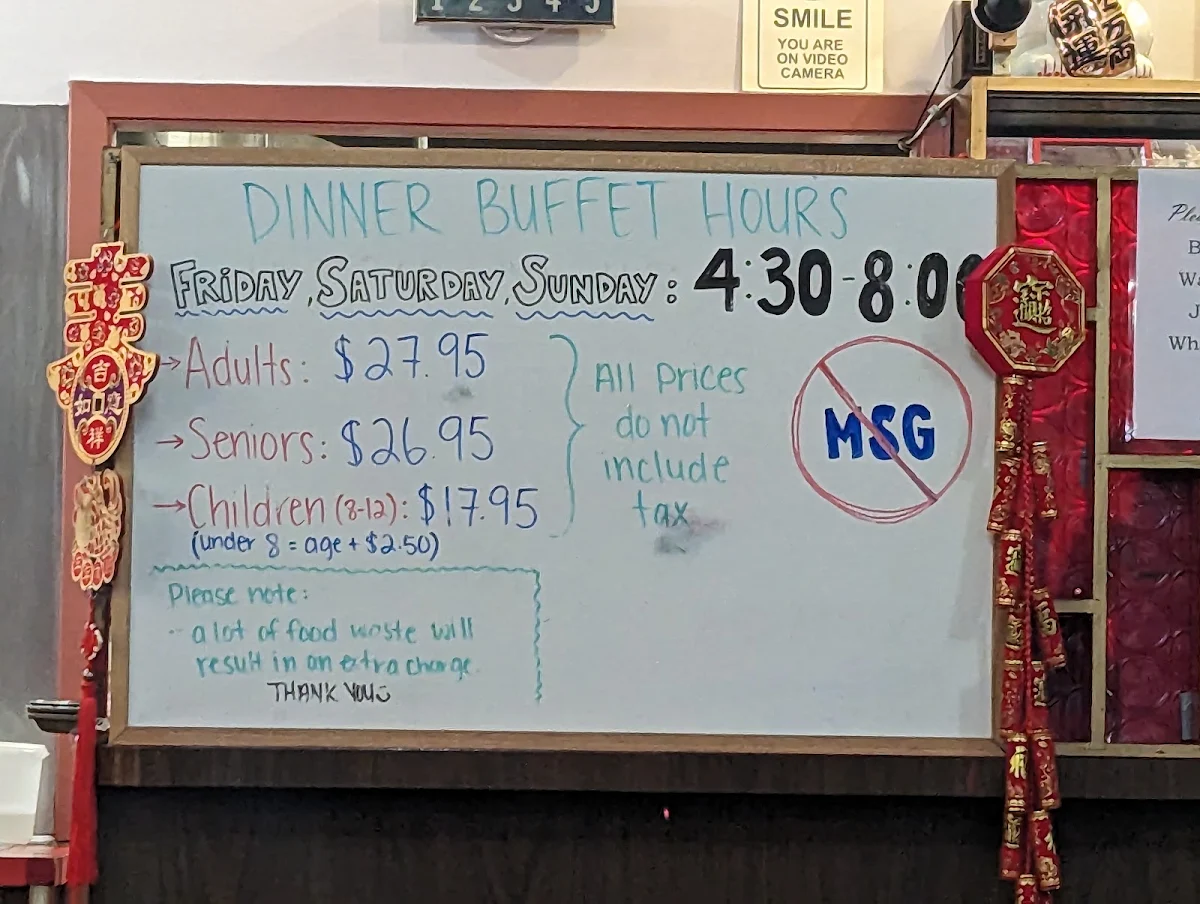 1 2 3 4 5
SMILE
YOU ARE
ON VIDEO
CAMERA
開運
DINNER BUFFET HOURS
FRiDAY, SATURDAY, SUNDAY: 4:30-8:00
→Adults: $27.95
→Seniors: $26.95
→Children (8-12): $17.95
(under 8 = age + $2.50)
All prices
do not
include
tax
MSG
Please note:
- a lot of food waste will
result in an extra charge.
THANK YOU
吉
如意
祥